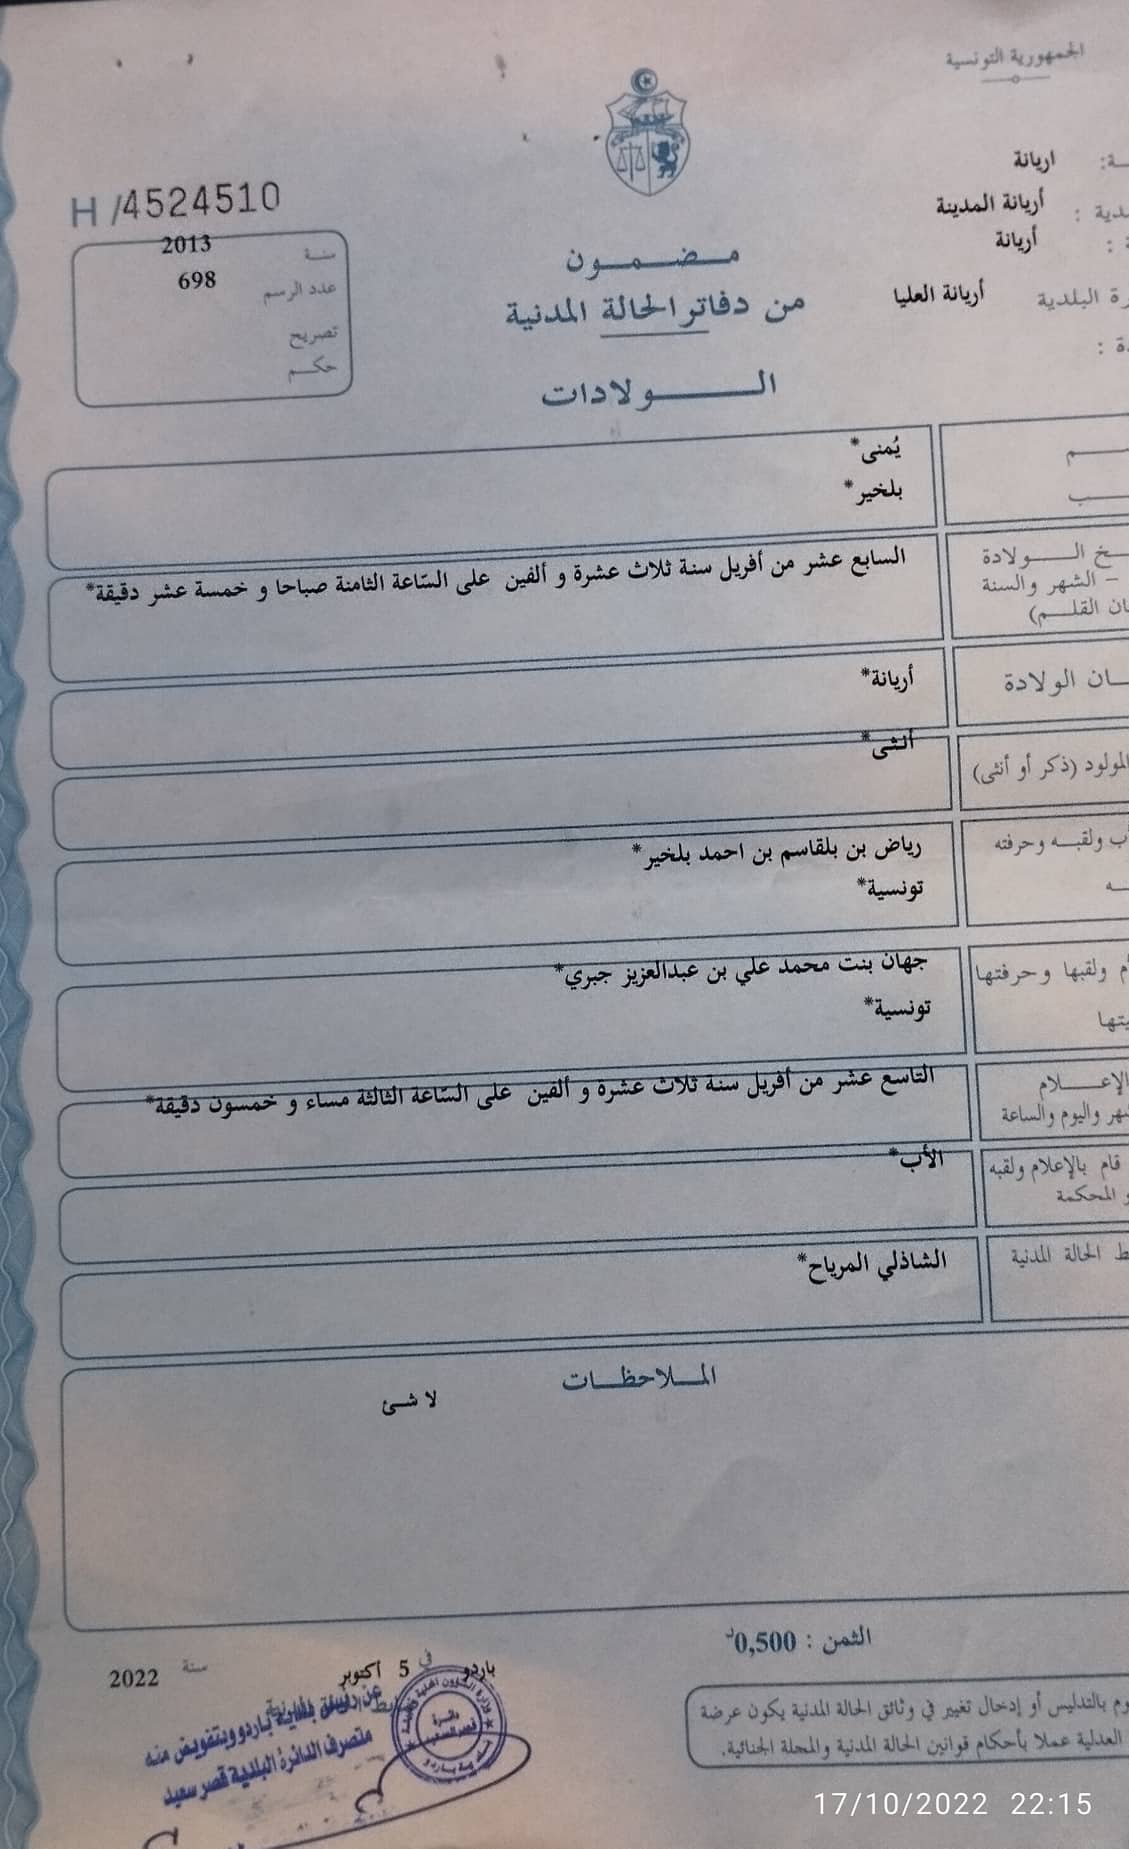 الجمهورية التونسية
اريانة
أريانة المدينة
أريانة
البلدية أريانة العليا
H /4524510
سنة 2013
عدد الرسم 698
تصريح
حكم
مضمون
من دفاتر الحالة المدنية
الولادات
يُمنى*
بلخير*
الولادة
السابع عشر من أفريل سنة ثلاث عشرة و ألفين على السّاعة الثامنة صباحا و خمسة عشر دقيقة*
- الشهر والسنة
القلم)
الولادة أريانة*
المولود (ذكر أو أنثى) أنثى*
ولقبه وحرفته رياض بن بلقاسم بن احمد بلخير*
تونسية*
ولقبها وحرفتها جهان بنت محمد علي بن عبدالعزيز جبري*
تونسية*
الإعلام التاسع عشر من أفريل سنة ثلاث عشرة و ألفين على السّاعة الثالثة مساء و خمسون دقيقة*
واليوم والساعة
قام بالإعلام ولقبه الأب*
المحكمة
الحالة المدنية الشاذلي المرياح*
الملاحظات
لا شئ
الثمن : 0,500د
باردو في 5 أكتوبر سنة 2022
عن رئيس بلدية باردو وبتفويض منه
متصرف الدائرة البلدية قصر سعيد
بالتدليس أو إدخال تغيير في وثائق الحالة المدنية يكون عرضة
العدلية عملا بأحكام قوانين الحالة المدنية والمجلة الجنائية.
17/10/2022 22:15